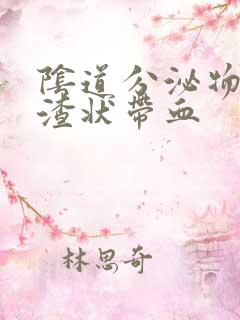 陰道分泌物
渣状帶血
林思奇